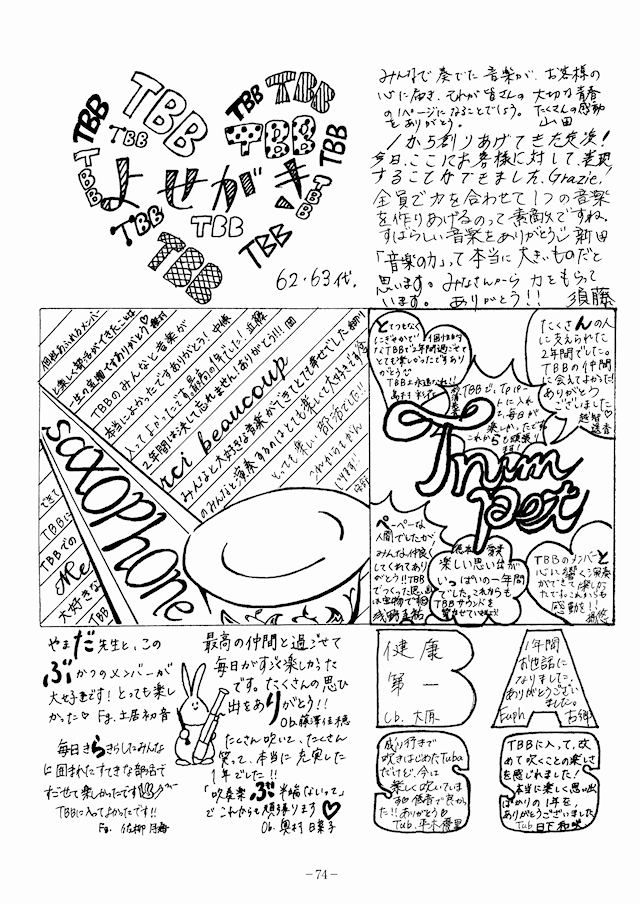 TBB
TBB
TBB
TBB
TBB
TBB
TBB
TBB
TBB
よせがき
TBB
TBB
TBB
TBB
TBB
62・63代.
みんなで奏でた音楽が、お客様の
心に届き、それが皆さんの大切な青春
の1ページになることでしょう。たくさんの感動
をありがとう。 山田
1から創りあげてきた定演!
今日、ここにお客様に対して、表現
することができました、Grazie!
全員で力を合わせて1つの音楽
を作りあげるのって素敵ですね。
すばらしい音楽をありがとう 新田
「音楽の力」って本当に大きいものだと
思います。みなさんから力をもらって
います。ありがとう!! 須藤
個性あふれるメンバー
と楽しく部活ができたことは
一生の宝物です ありがとう♡
TBBのみんなと音楽が
本当によかったです ありがとう!
入ってよかったです 最高の1年でした!
2年間は決して忘れません!ありがとう!!!
rci beaucoup
みんなと大好きな音楽ができてとても幸せでした
のみんなと演奏するのはとても楽しくて大好きです
とっても楽しい部活でした!!
saxophone
TBBに
TBBでの
Me
大好きな
TBB
とてつもなく
にぎやかで!!個性的
なTBBで2年間過ごせて
とても楽しかったです あり
がとう
TBBは永遠なれ!!
TBBで、Tpパー
トに入れ
毎日が
楽しかったです
これからも頑張り
ます!
たくさんの人
に支えられた
2年間でした。
TBBの仲間
に会えてよかった!
ありがとう
ございました
越智
遥香
Trumpet
ペーペーな
人間でしたが、
みんな仲良く
してくれてあり
がとう!!TBB
でつくった思い出
は宝物です
楽しい思い出が
いっぱいの一年間
でした。これからも
TBBサウンドを
響かせていきます!
TBBのメンバーと
心に響く演奏
ができて楽しか
ったです。これからも
感動を!!
やまだ先生と、この
ぶかつのメンバーが
大好きです!とっても楽し
かった♡ Fg. 土居初音
毎日きらきらしたみんな
に囲まれたすてきな部活で
すごせて楽しかったです
TBBに入ってよかったです!!
Fg. 佐柳
最高の仲間と過ごせて
毎日がすごく楽しかった
です。たくさんの思い
出をありがとう!!
Ob.藤澤佳穂
たくさん吹いて、たくさん
笑って、本当に充実した
1年でした!!
「吹奏楽ぶ半端ないって」
でこれからも頑張ります♡
Ob. 奥村日菜子
B
健康
第一
Cb. 大原
A
1年間
お世話に
なりました。
ありがとうござい
ました。
Euph 古郷
成り行きで
吹きはじめたTuba
だけど、今は
楽しく吹いてい
ます 低音で良かっ
た!!ありがとう
Tub. 平木優里
TBBに入って、改
めて吹くことの楽しさ
を感じれました!
本当に楽しい思い出
ばかりの1年を、
ありがとうございました
Tub 日下和咲
-74-